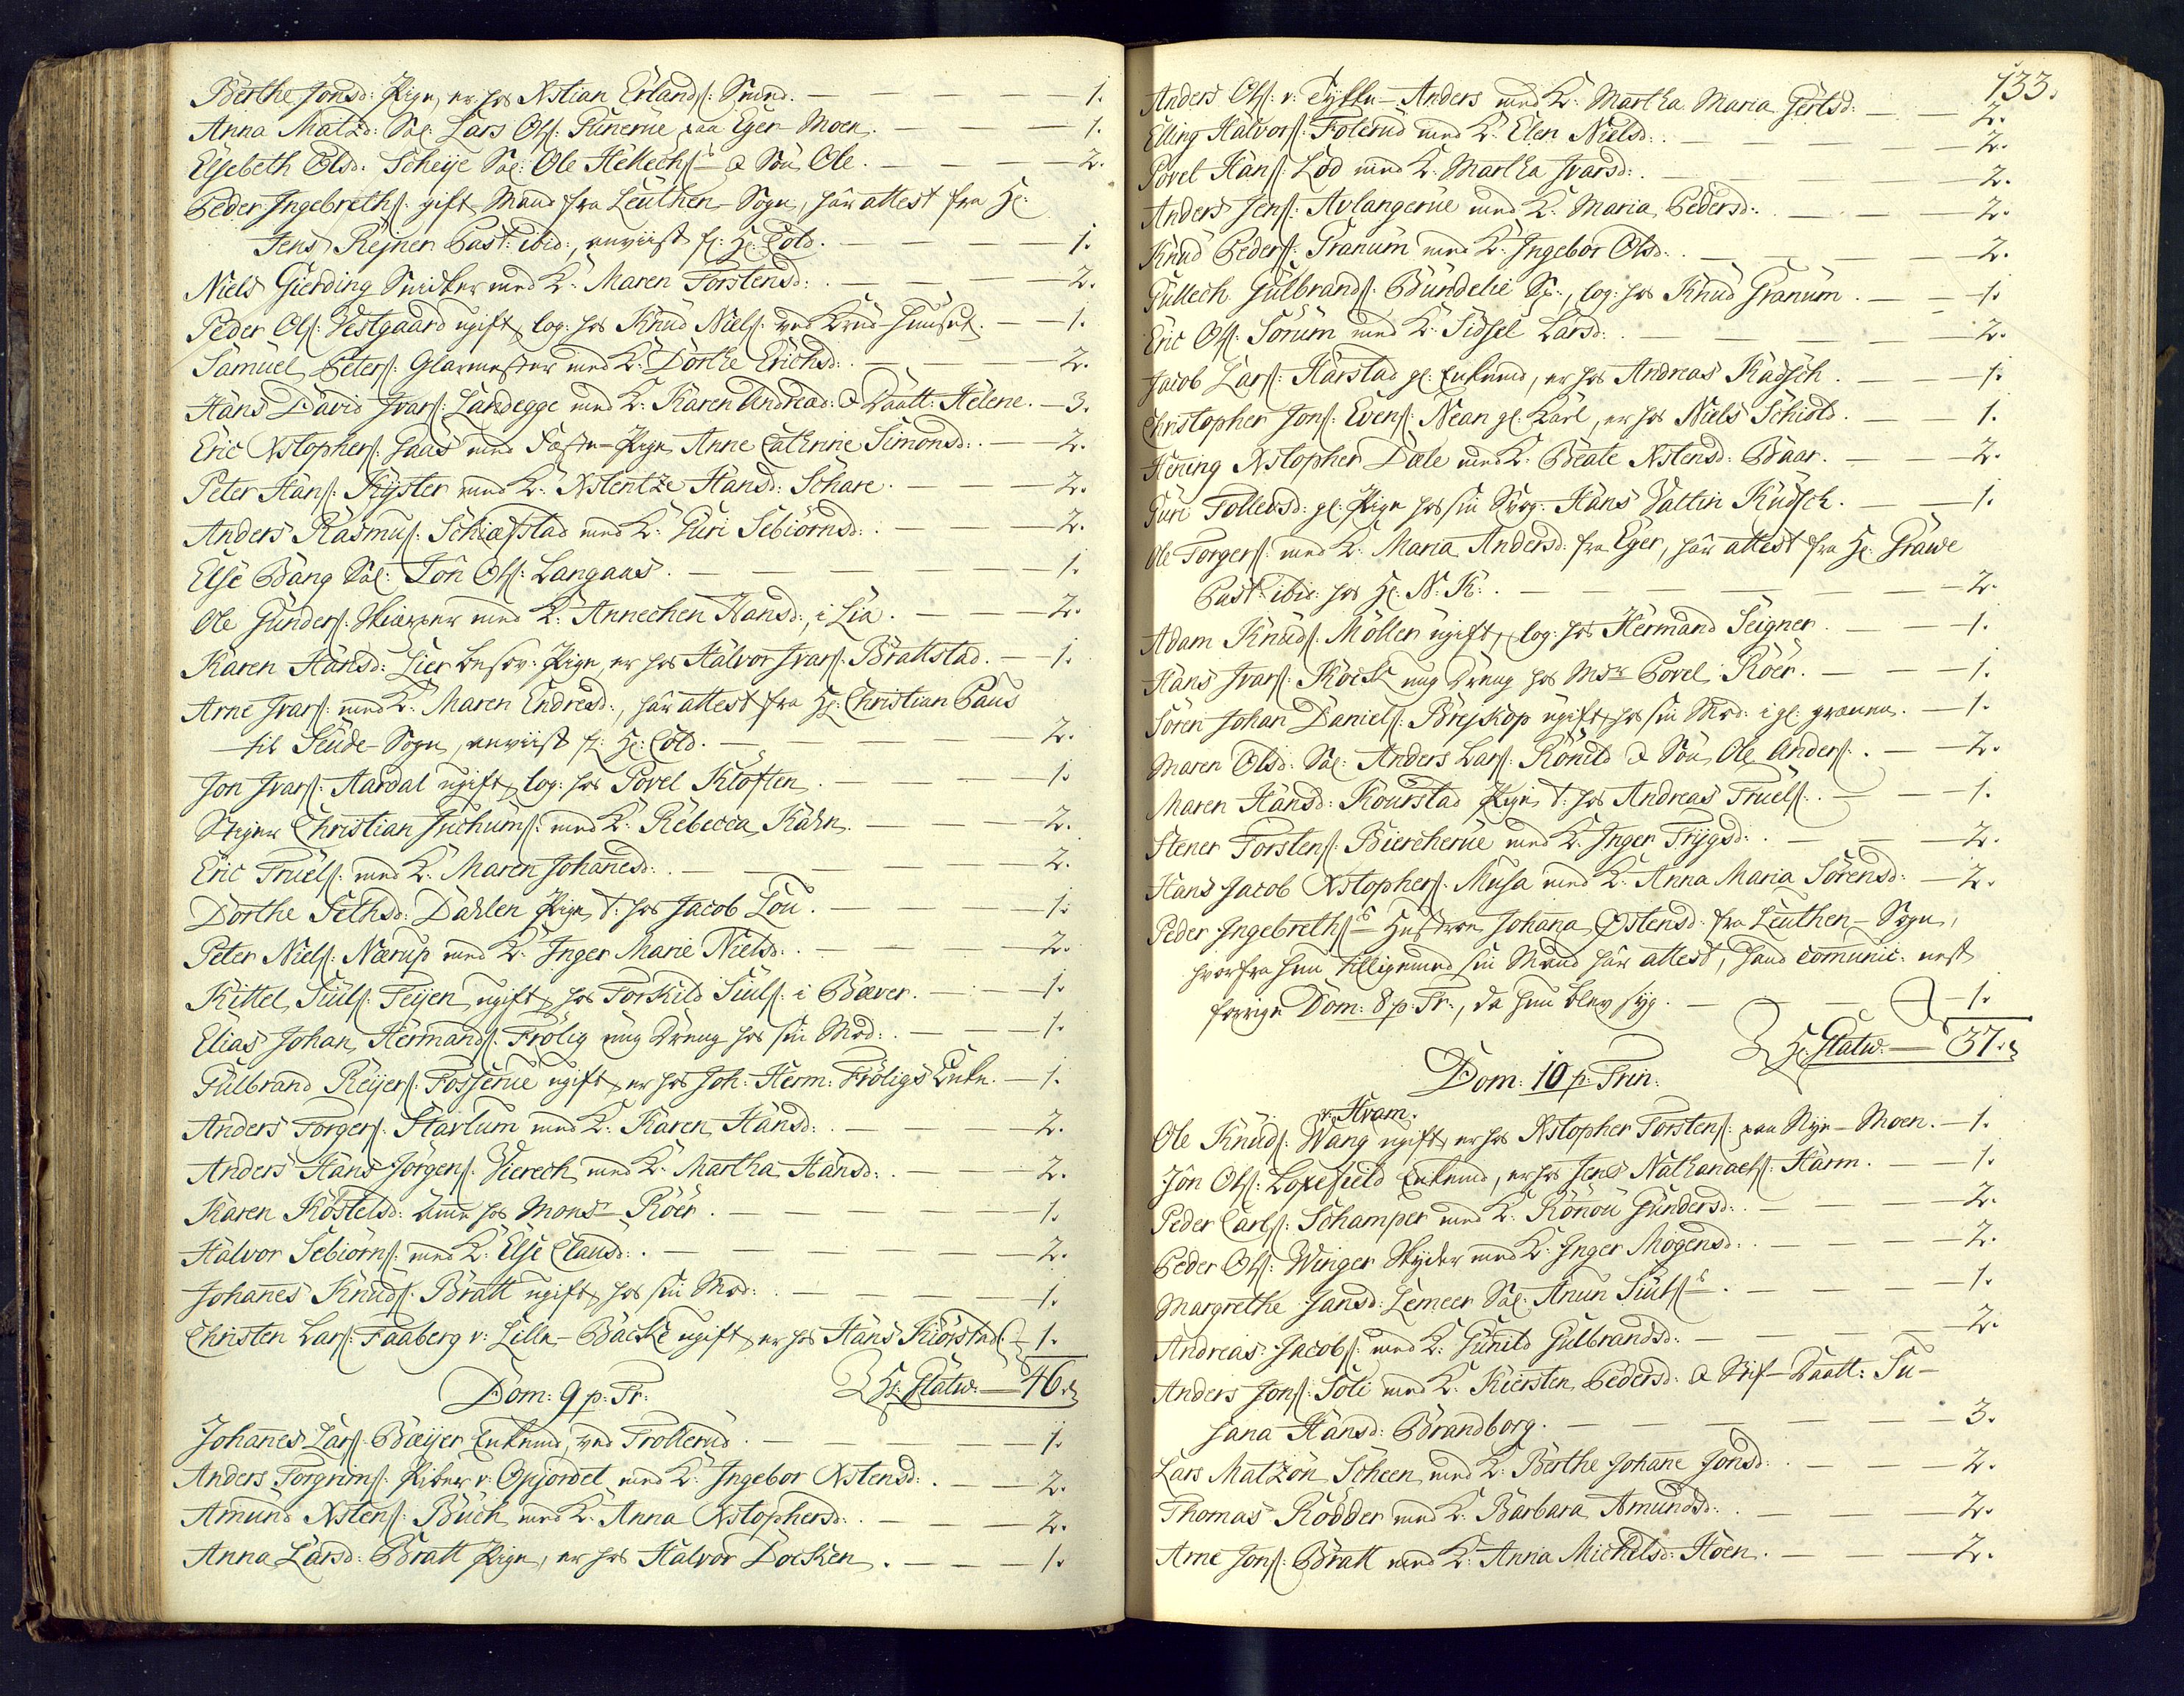 Birthe Jonsd: Pige, er hos Xstian Erlands: Smed. — 1.
Anna Matzd: Sal: Lars Ols: Gunerue paa Eger Moen. — 1.
Elsebeth Olsd: Scheije Sal: Ole Hellechs: & Søn Ole. — 2.
Peder Ingebreths: gift Mand fra Leuthen-Sogn, har attest fra Hr:
Jens Rejner Past: ibid:, anviist f: Hr: Cold. — 1.
Niels Gierding Snidker med K: Maren Torstensd: — 2.
Peder Ols: Vestgaard ugift, log: hos Knud Niels: ved Krud-Huuset. — 1.
Samuel Peters: Glarmester med K: Dorthe Erichsd: — 2.
Hans David Ivars: Landegge med K: Karen Andread: & Daatt: Helene. — 3.
Eric Xstophers: Haas med Fæste-Pige Anne Cathrine Simonsd: — 2.
Peter Hans: Kyster med K: Xstentze Hansd: Schare. — 2.
Anders Rasmus: Schiæfstad med K: Guri Sebiørnsd: — 2.
Else Bang Sal: Jon Ols: Langaas. — 1.
Ole Gunders: Skierper med K: Annechen Hansd:, i Lia. — 2.
Karen Hansd: Lier besov: Pige, er hos Halvor Ivars: Brattstad. — 1.
Arne Ivars: med K: Maren Endresd:, har attest fra Hr: Christian Paus
til Seude-Sogn, anviist f: Hr: Cold. — 2.
Jon Ivars: Aardal ugift, log: hos Povel Kloften. — 1.
Steger Christian Jochums: med K: Rebecca Kahn. — 2.
Eric Truels: med K: Maren Johanesd: — 2.
Dorthe Sethsd: Dahlen Pige, t: hos Jacob Lou. — 1.
Peter Niels: Nærup med K: Inger Marie Nielsd: — 2.
Kittel Siuls: Teijen, ugift, hos Torkild Siuls: i Bæver. — 1.
Elias Johan Hermands: Frølig ung Dreng hos sin Mod: — 1.
Gulbrand Reijers: Fosserue ugift, er hos Joh: Herm: Frøligs Enke. — 1.
Anders Torgers: Starlum med K: Karen Hansd: — 2.
Anders Hans Jørgens: Vierech med K: Martha Hansd: — 2.
Karen Kostelsd: Amme hos Monsr Röer. — 1.
Halvor Sebiørns: med K: Else Clausd: — 2.
Johanes Knuds: Bratt ugift, hos sin Mod: — 1.
Christen Lars: Faaberg v: Lille-Bache ugift, er hos Hans Kiørstad — 1.
Dom: 9 p: Tr: Hr: Statw. — 46.
Johanes Lars: Bæijer Enkemd, ved Trollerud. — 1.
Anders Torgrims: Piber v: Opjordet med K: Ingebor Xstensd: — 2.
Amund Xstens: Buch med K: Anna Xstophersd: — 2.
Anna Larsd: Bratt Pige, er hos Halvor Docken. — 1.
133.
Anders Ols: v: Tykke-Anders med K: Martha Maria Gertsd: — 2.
Elling Halvors: Folerud med K: Elen Nielsd: — 2.
Povel Hans: Lod med K: Martha Ivarsd: — 2.
Anders Jens: Avlangerue med K: Maria Pedersd: — 2.
Knud Peders: Granum med K: Ingebor Olsd: — 2.
Gullech Gulbrands: Bundelie Sk:, log: hos Knud Granum. — 1.
Eric Ols: Sorum med K: Sidsel Larsd: — 2.
Jacob Lars: Harstad gl: Enkemd, er hos Andreas Kadsch. — 1.
Christopher Jons: Evens: Nean gl: Karl, er hos Niels Schiold. — 1.
Hening Xstopher Dale med K: Beate Xstensd: Baar. — 2.
Guri Tollevsd: gl: Pige hos sin Svog: Hans Valtin Kudsch. — 1.
Ole Torgers: med K: Maria Andersd: fra Eger, har attest fra Hr: Grawe
Past: ibid: hos Hr: N: K: — 2.
Adam Knuds: Møller ugift, log: hos Hermand Seigner. — 1.
Hans Ivars: Kock ung Dreng hos Msr Povel Röer. — 1.
Søren Johan Daniels: Brejskop ugift, hos sin Mod: i gl: grænna. — 1.
Maren Olsd: Sal: Anders Lars: Konild & Søn Ole Anders: — 2.
Maren Hansd: Kourstad Pige, t: hos Andreas Truels: — 1.
Stener Torstens: Biercherue med K: Inger Trygsd: — 2.
Hans Jacob Xstophers: Musa med K: Anna Maria Sørensd: — 2.
Peder Ingebreths: Hustroe Johana Østensd: fra Leuthen-Sogn,
hvorfra hun tilligemed sin Mand har attest, hand comunic: nest
forrige Dom: 8 p: Tr:, da hun blev syg. — 1.
Hr: Statw. — 37.
Dom: 10 p: Trin:
v: Hvam.
Ole Knuds: Wang ugift, er hos Xstopher Torstens: paa Nye-Moen. — 1.
Jon Ols: Loxefield Enkemd, er hos Jens Nathanaels: Harm. — 1.
Peder Carls: Schamper med K: Rønou Gundersd: — 2.
Peder Ols: Winger Skyder med K: Inger Mogensd: — 2.
Margrethe Jansd: Lemeer Sal: Anun Siuls: — 1.
Andreas Jacobs: med K: Gunild Gulbrandsd: — 2.
Anders Jons: Soli med K: Kiersten Pedersd: & Stif-Daatt: Su-
sana Hansd: Brandborg. — 3.
Lars Matzøn Scheen med K: Birthe Johane Jonsd: — 2.
Thomas Rødder med K: Barbara Amundsd: — 2.
Arne Jons: Bratt med K: Anna Michelsd: Hoen. — 2.